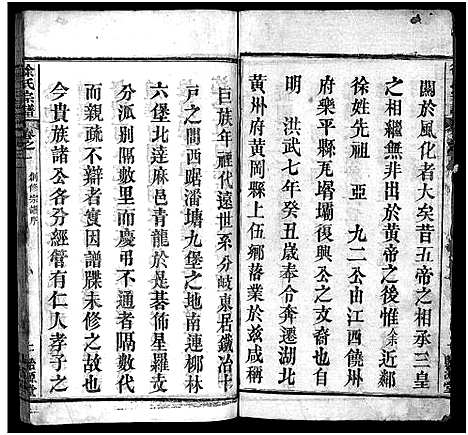 關於風化者大矣昔五帝之相承三皇
之相繼無非出於黃帝之後惟余近鄰
徐姓先祖 亞 九二公由江西饒州
府樂平縣瓦塥壩復興公於
明 洪武七年癸丑歲奉令奔遷湖北
黃州府黃岡縣上伍鄉落業於兹咸稱
巨族年禋代遠世系分岐東居鐵冶十
戸之間西踞潘塘九堡之地南連柳林
六堡北達麻邑青龍於是碁佈星羅支
分派别隔數里而慶弔不通者隔數代
而親疏不辯者寔因譜牒未修之故也
今貴族諸公各分經管有仁人孝子之
徐氏宗譜 卷之一 創修宗譜序